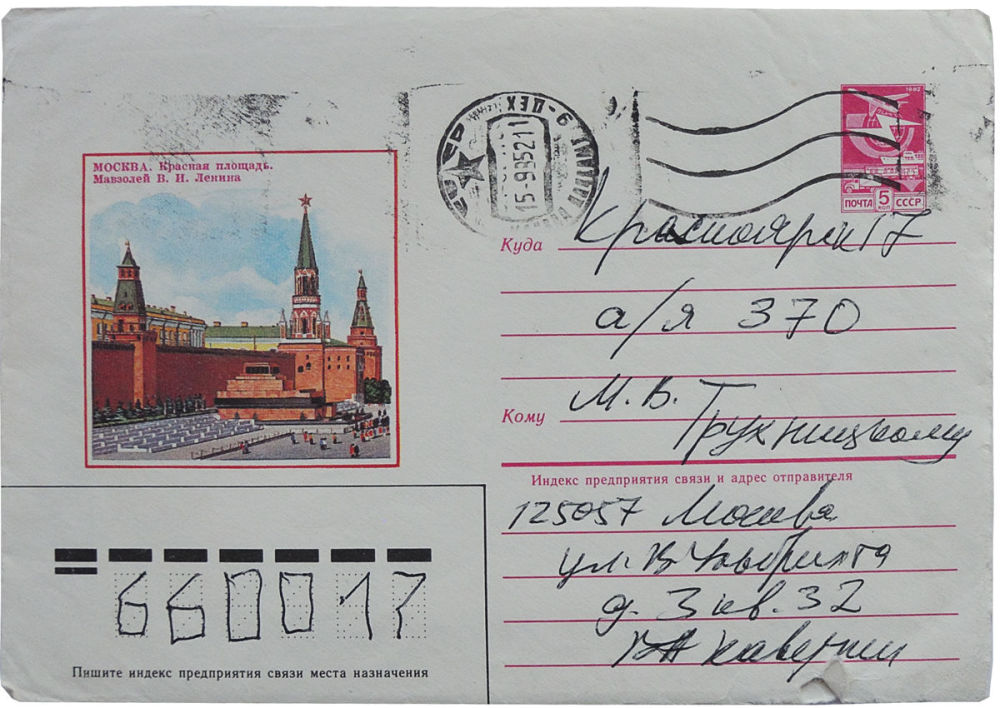 МОСКВА. Красная площадь.
Мавзолей В. И. Ленина
15-985211
1982
ПОЧТА 5 КОП СССР
Куда Красноярск 17
а/я 370
Кому М. В.
Трухницкому
Индекс предприятия связи и адрес отправителя
125057 Москва
ул. В. Ульбрихта
д. 3 кв. 32
660017
Пишите индекс предприятия связи места назначения